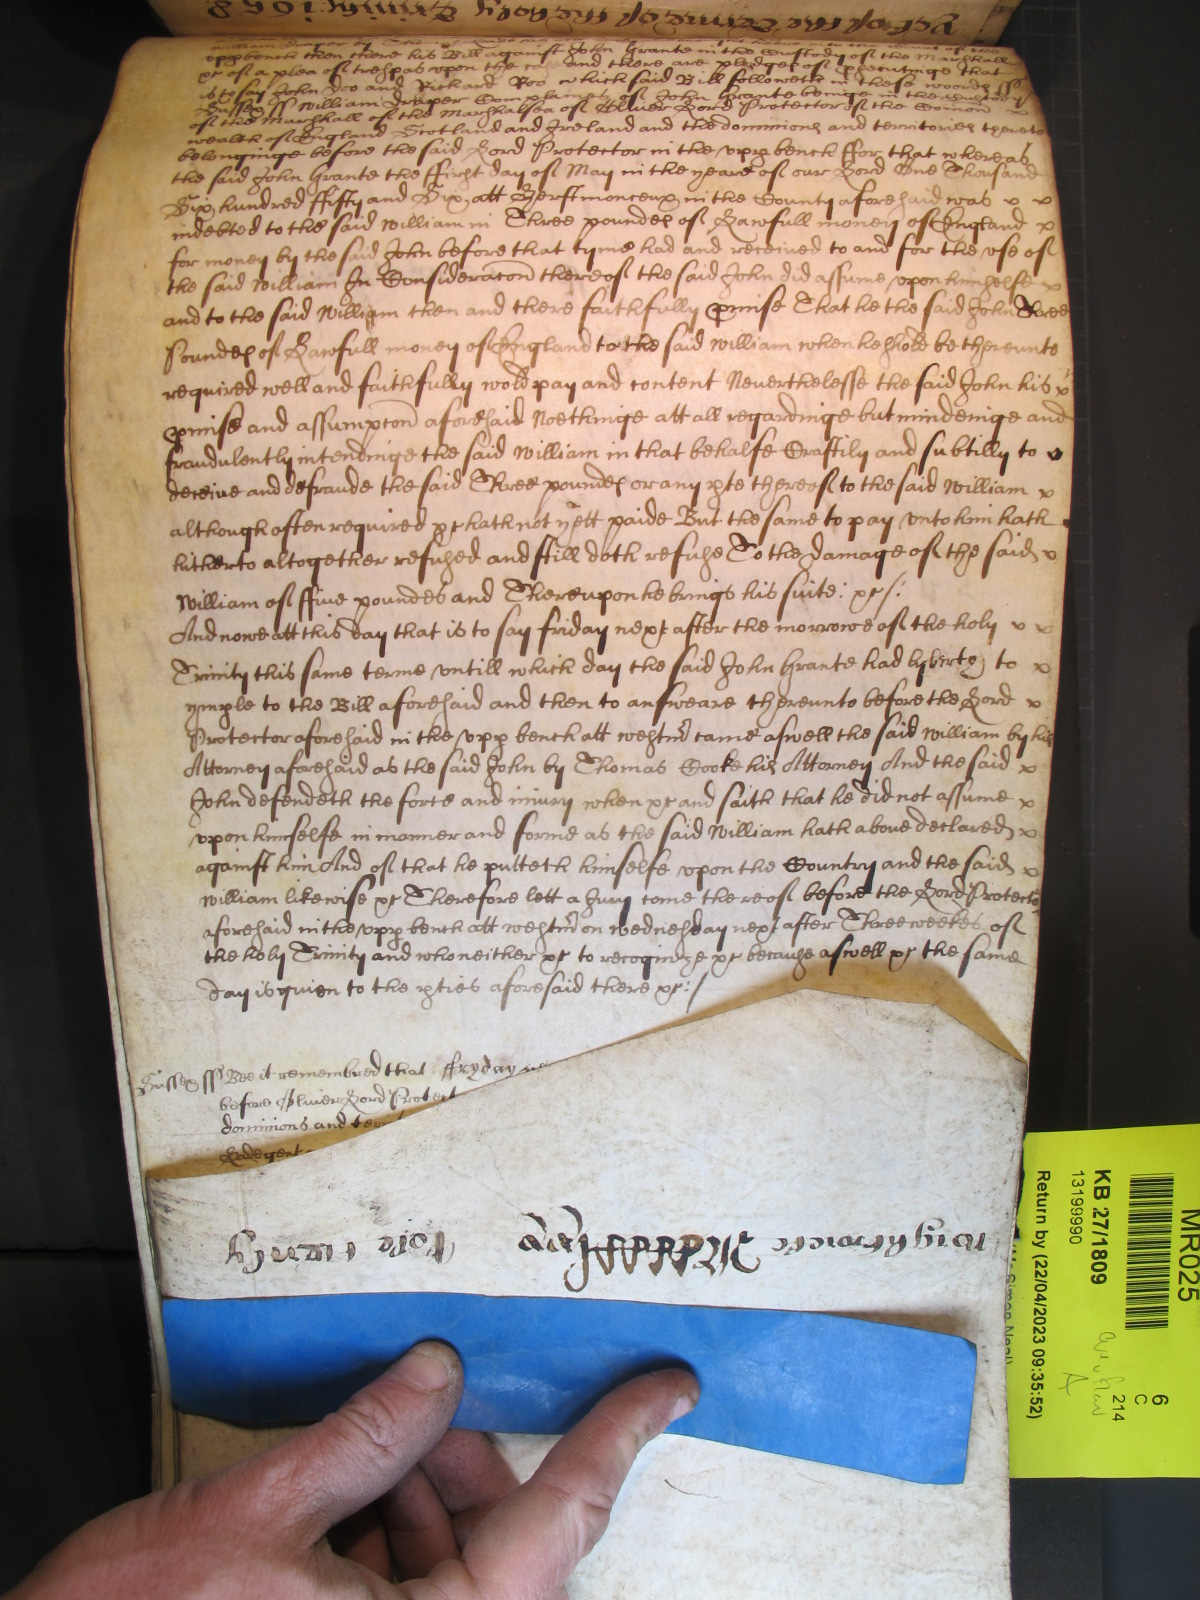 Yet of the Terme of the holy Trinity 1658
upp bench then there his Bill against John Grante in the Custody of the Marshall
xc of a plea of trespas upon the case and there are pledges of prosecutinge that
is to say John Doo and Richard Roo which said Bill followeth in these woords ss
Sussex ss William Draper Complaynes of John Grante beinge in the custody
of the Marshall of the Marshalsea of Oliver Lord Protector of the Common
wealth of England Scotland and Ireland and the dominions and territories thereto
belonginge before the said Lord Protector in the upp bench ffor that whereas
the said John Grante the ffirst day of May in the yeare of our Lord One Thousand
Six hundred ffifty and Six att Herstmonceux in the County aforesaid was x x
indebted to the said William in Three poundes of Lawfull money of England x
for money by the said John before that tyme had and received to and for the use of
the said William In Consideracon thereof the said John did assume upon himselfe x
and to the said William then and there faithfully pmise That he the said John Three
Poundes of Lawfull money of England to the said William when he shold be thereunto
required well and faithfully wold pay and content Neverthelesse the said John his x
pmise and assumpcon aforesaid Noethinige att all regardinge but mindeinge and
fraudulently intendinge the said William in that behalfe Craftily and subtilly to x
deceive and defraude the said Three poundes or any pte thereof to the said William x
although often required xc hath not yett paide But the same to pay unto him hath
hitherto altogether refused and still doth refuse To the damage of the said x
William of ffive poundes and Thereupon he brings his suite: xc /:
And nowe att this day that is to say friday next after the morrowe of the holy x x
Trinity this same terme untill which day the said John Grante had lyberty to x
ymple to the Bill aforesaid and then to answeare thereunto before the Lord x
Protector aforesaid in the upp bench att westmr came aswell the said William by his
Attorney aforesaid as the said John by Thomas Cooke his Attorney And the said x
John defendeth the force and iniury when xc and saith that he did not assume x
upon himselfe in manner and forme as the said William hath above declared x
against him And of that he putteth himselfe upon the Country and the said x
William likewise xc Therefore lett a Jury come thereof before the Lord Protector
aforesaid in the upp bench att westmr on wednesday next after Three weekes of
the holy Trinity and who neither xc to recognize xc because aswell xc the same
day is given to the pties aforesaid there xc :/
Sussex ss Bee it remembred that ffryday
before Oliver Lord Protect
dominions and terr
wightwicke
MR025
6
C
214
KB 27/1809
13199990
Return by (22/04/2023 09:35:52)